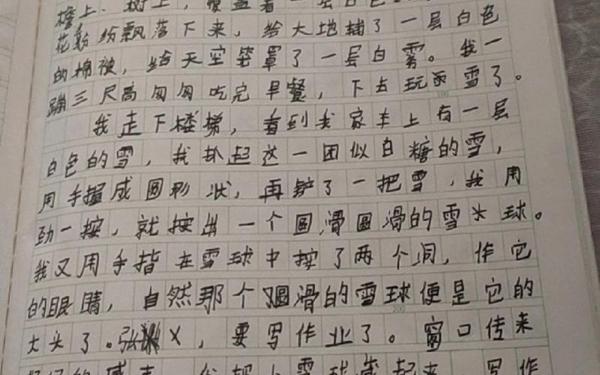 墙上、树上，覆盖着一层白色
花纷纷飘落下来，给大地铺了一层白色
的棉被，给天空笼罩了一层白雾。我一
蹦三尺高匆匆吃完早餐，下去玩雪了。
我走下楼梯，看到我家车上有一层
白色的雪，我趴起这一团似白糖的雪，
用手握成圆形状，再铲了一把雪，我用
劲一按，就按出一个圆滑圆滑的雪大球。
我又用手指在雪球中按了两个洞，作它
的眼睛，自然那个圆滑的雪球便是它的
大头了。张 X，要写作业了。窗口传来
的 声 我 上雪球 起来 写作